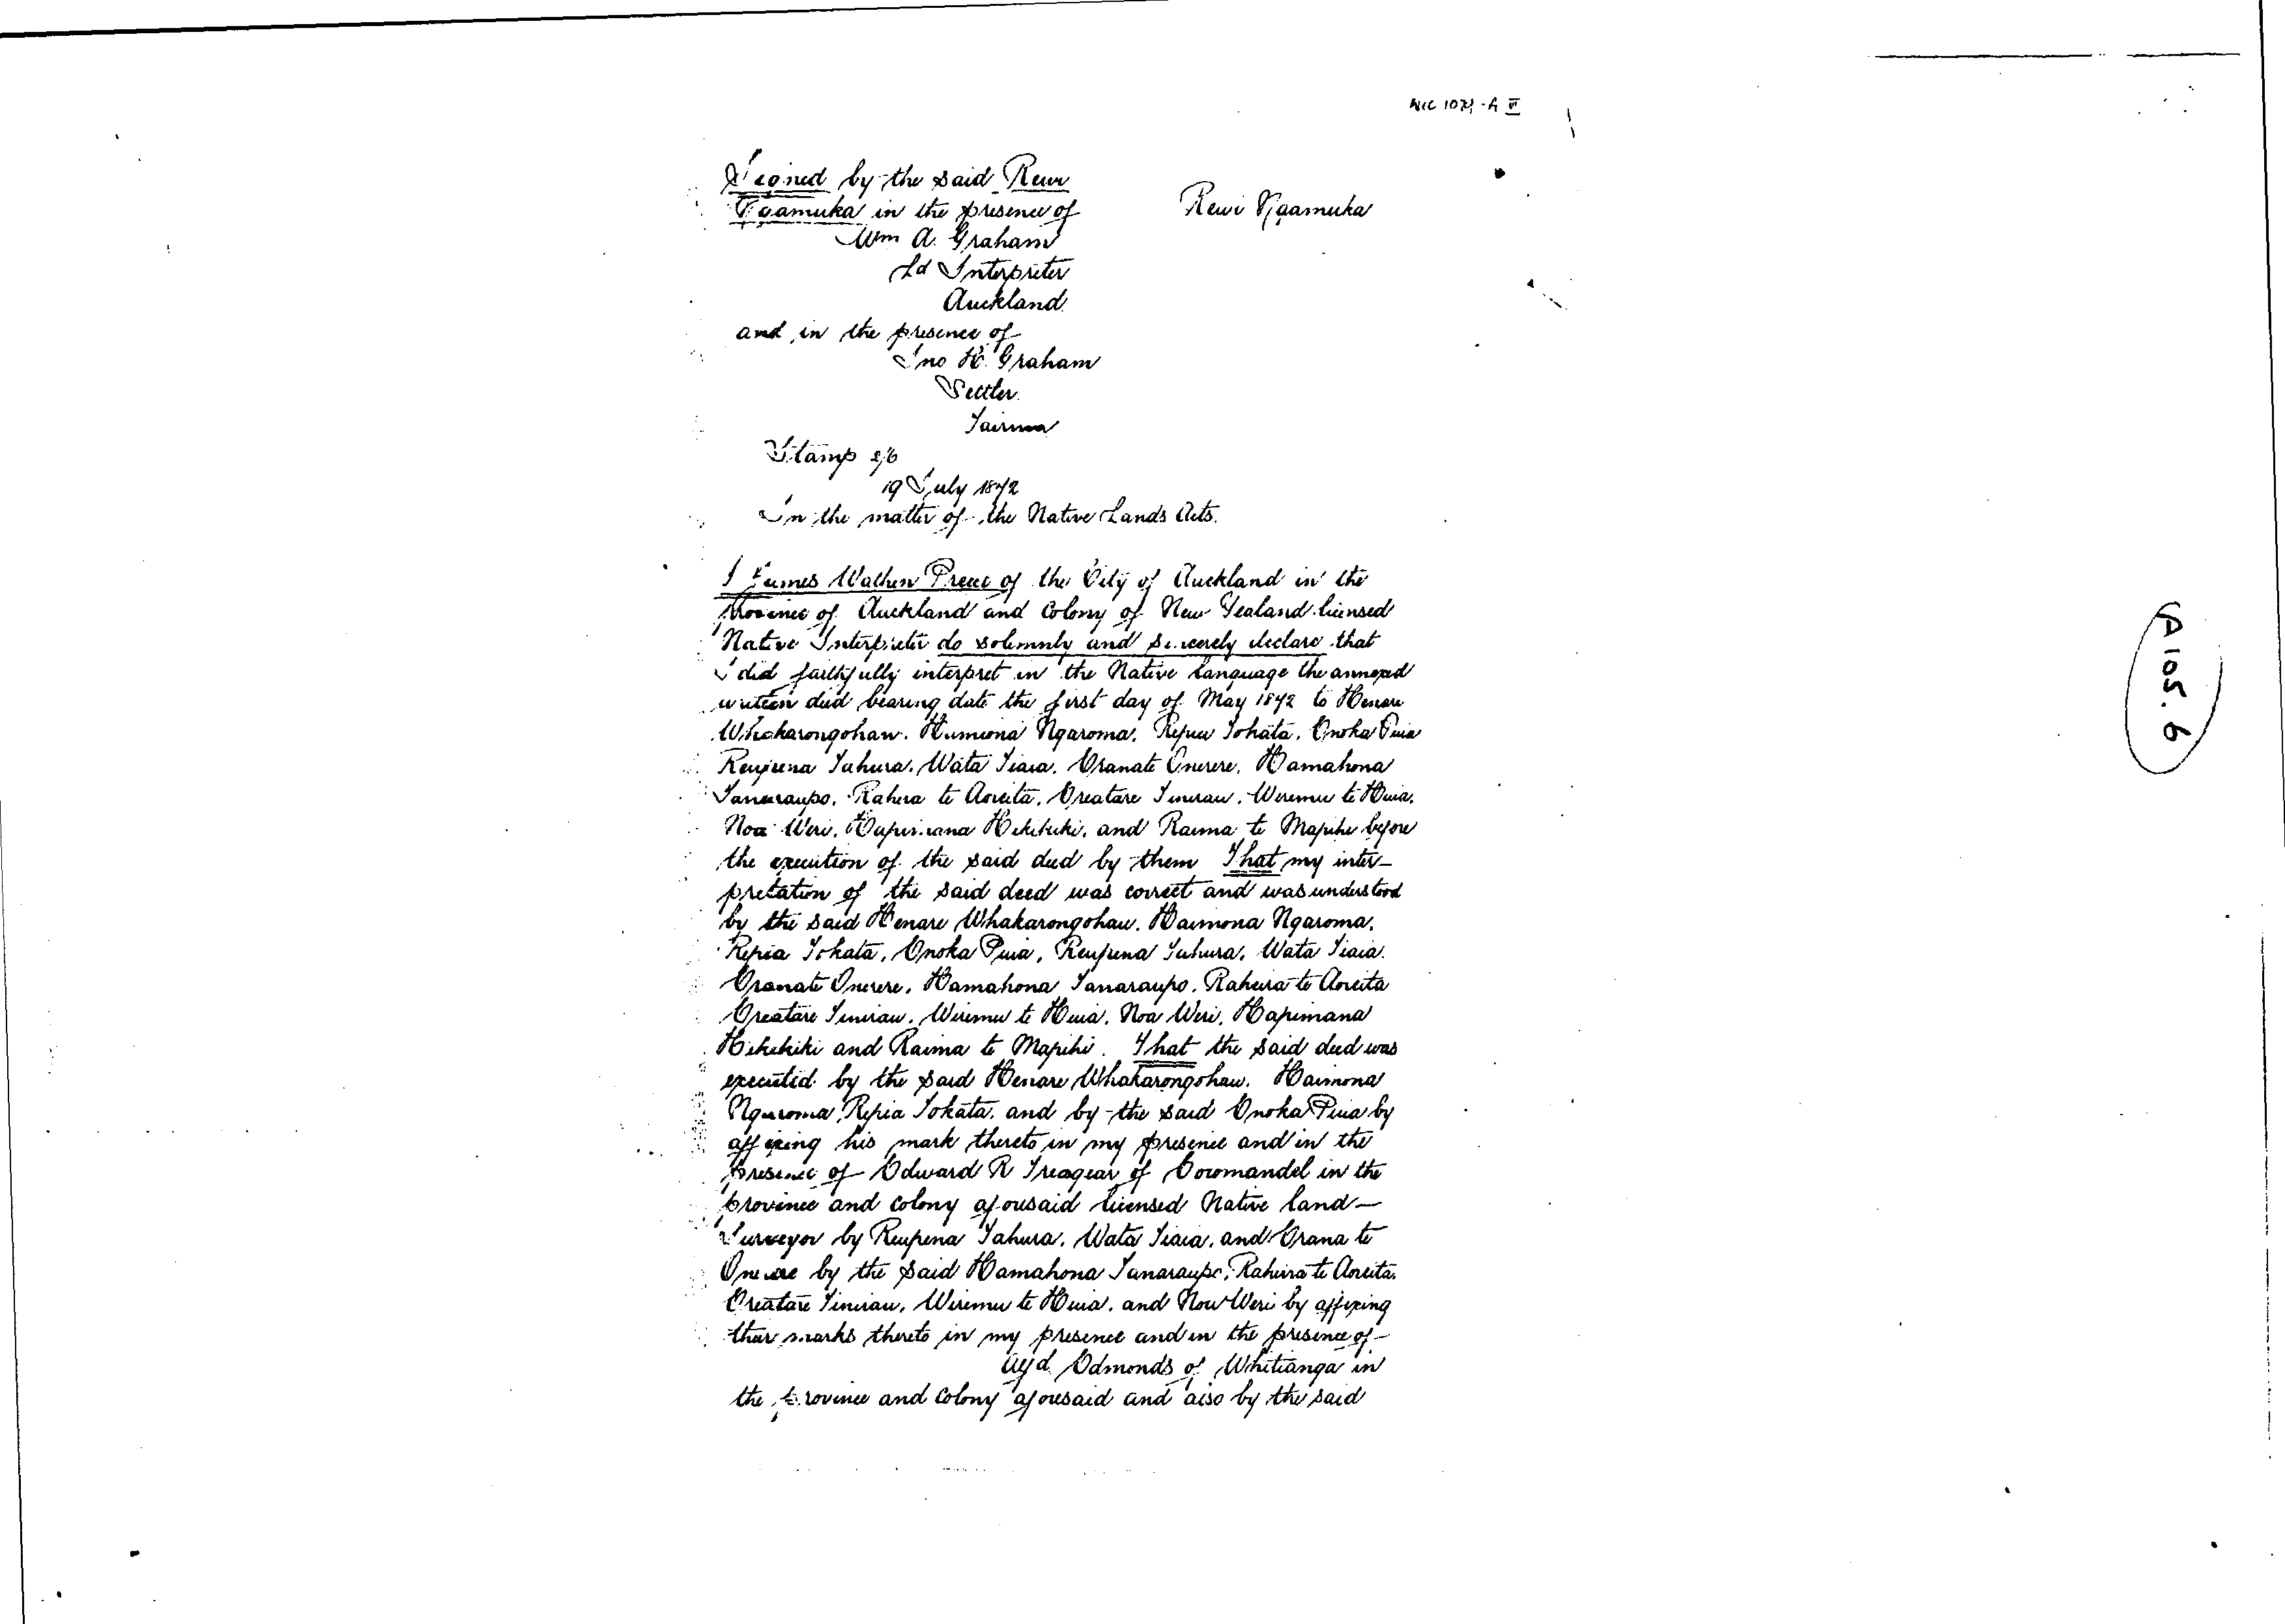 Signed by the said Rewi
Ngamuka in the presence of
Rewi Ngamuka
Wm A. Graham
Ld Interpreter
Auckland
and in the presence of
Jno H. Graham
Settler
Tairua
Stamp 2/6
19 July 1872
In the matter of the Native Lands Acts.
I James Wathen Preece of the City of Auckland in the
Province of Auckland and Colony of New Zealand licensed
Native Interpreter do solemnly and sincerely declare that
I did faithfully interpret in the Native language the annexed
written deed bearing date the first day of May 1872 to Henare
Whakarongohau. Haimona Ngaroma. Repia Tokata, Onoka Puia
Reupena Tahura. Wata Tiaia. Oranate Onerere. Hamahona
Tanaraupo. Rahera te Aoreita. Oreatare Timirau. Wiremu te Huia.
Noa Weri. Hapimana Hikihiki, and Raima te Mapihi before
the execution of the said deed by them That my inter-
pretation of the said deed was correct and was understood
by the said Henare Whakarongohau. Haimona Ngaroma.
Repia Tokata, Onoka Puia, Reupena Tahura, Wata Tiaia.
Oranate Onerere. Hamahona Tanaraupo. Rahera te Aoreita
Oreatare Timirau. Wiremu te Huia. Noa Weri. Hapimana
Hikihiki and Raima te Mapihi. That the said deed was
executed by the said Henare Whakarongohau. Haimona
Ngaroma, Repia Tokata. and by the said Onoka Puia by
affixing his mark thereto in my presence and in the
presence of Edward R Tregear of Coromandel in the
province and colony aforesaid licensed Native land-
Surveyor by Reupena Tahura, Wata Tiaia, and Orana te
Onerere by the said Hamahona Tanaraupo, Rahera te Aoreita.
Oreatare Timirau, Wiremu te Huia, and Noa Weri by affixing
their marks thereto in my presence and in the presence of-
Edmonds of Whitianga in
the province and colony aforesaid and also by the said